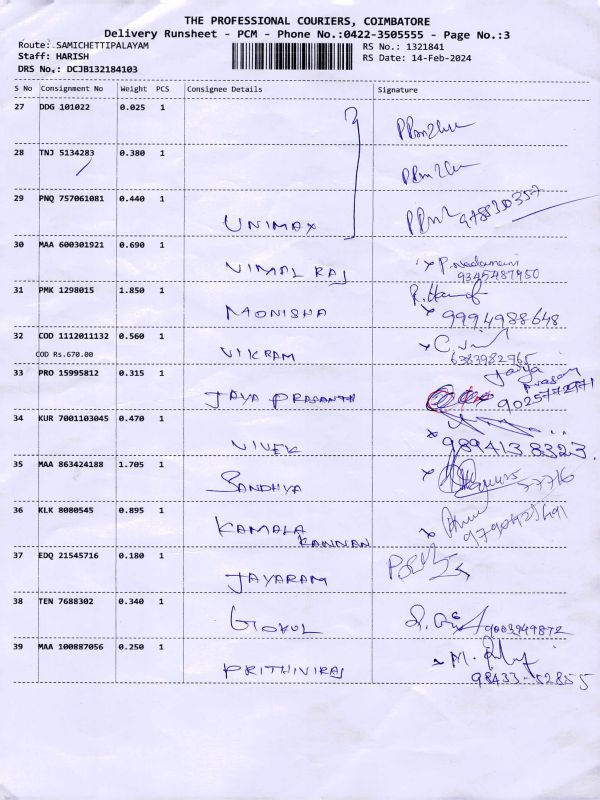 THE PROFESSIONAL COURIERS, COIMBATORE
Delivery Runsheet - PCM - Phone No.:0422-3505555 - Page No.:3
Route: SAMICHETTIPALAYAM RS No.: 1321841
Staff: HARISH RS Date: 14-Feb-2024
DRS No.: DCJB132184103
S No Consignment No Weight PCS Consignee Details Signature
27 DDG 101022 0.025 1
28 TNJ 5134283 0.380 1
29 PNQ 757061081 0.440 1
UNIMAX
30 MAA 600301921 0.690 1
VIMAL RAJ
9345487950
31 PMK 1298015 1.850 1
MONISHA 9994988648
32 COD 1112011132 0.560 1
COD Rs.670.00 VIKRAM 6383982765
33 PRO 15995812 0.315 1
JAYA PRASANTH
34 KUR 7001103045 0.470 1
VIVEK 9894138323
35 MAA 863424188 1.705 1
SANDHYA
36 KLK 8080545 0.895 1
KAMALA
KANNAN
37 EDQ 21545716 0.180 1
JAYARAM
38 TEN 7688302 0.340 1
GOKUL 9003949872
39 MAA 100887056 0.250 1
PRITHIVIRAJ 98433-52855